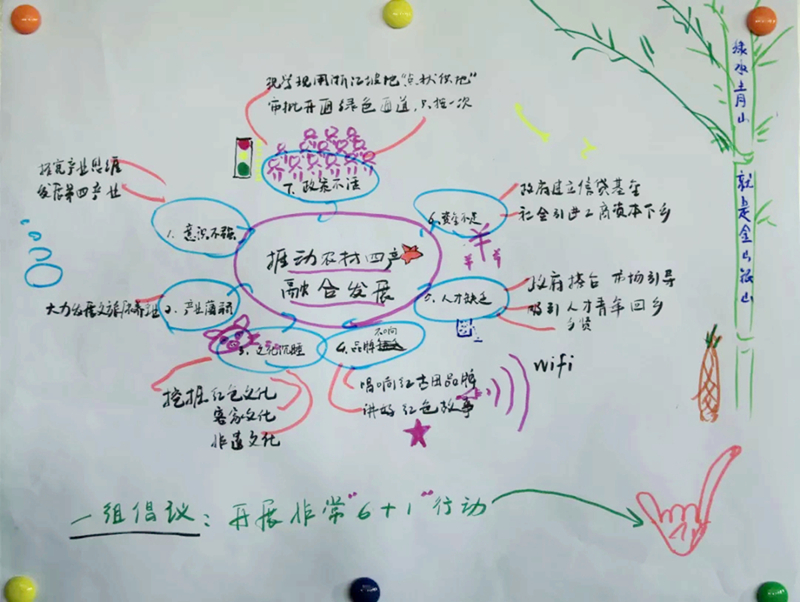 审批开通绿色通道,只推一次
探究产业思维
发展第四产业
7. 政策不活
1. 意识不强
6. 资金不足
政府建立信贷基金
社会引进工商资本下乡
推动农村四产
融合发展
2. 产业薄弱
5. 人才缺乏
政府搭台 市场引导
吸引人才青年回乡
乡贤
3. 文化沉睡
4. 品牌不响
挖掘红色文化
客家文化
非遗文化
唱响红古田品牌
讲好红色故事
wifi
一组倡议:开展非常"6+1"行动
绿水青山
就是金山银山